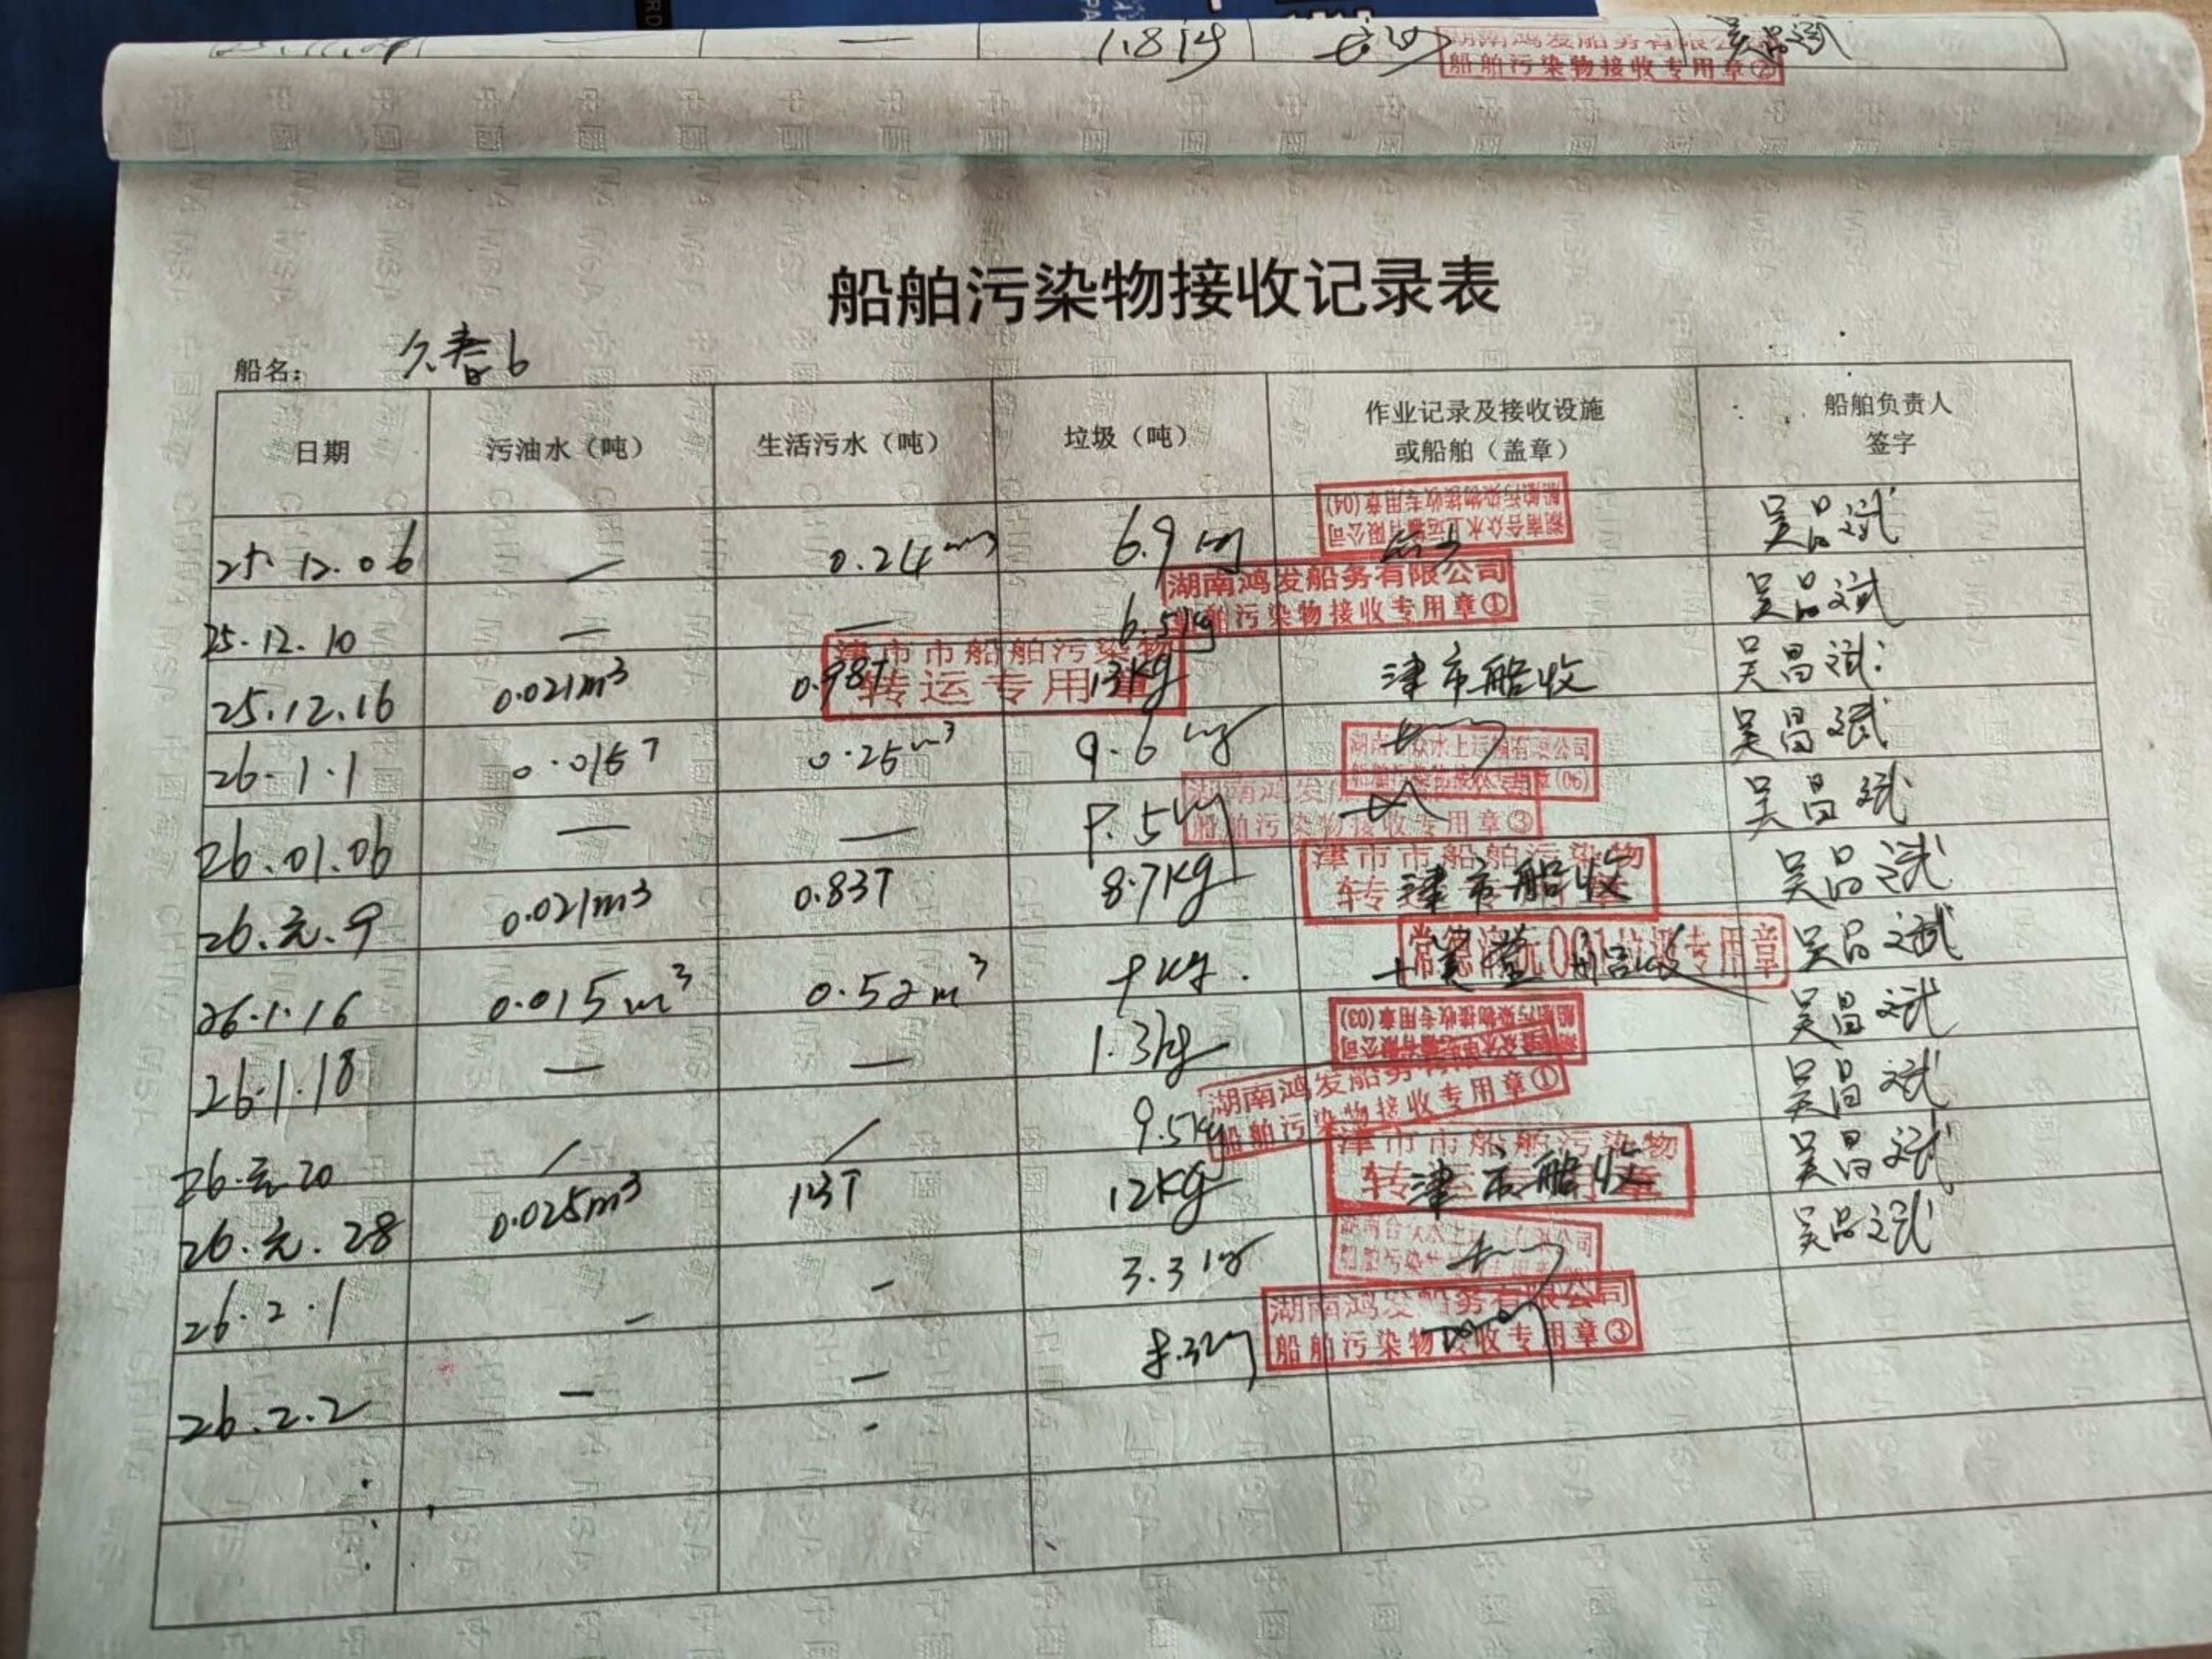 1.8 kg
湖南鸿发船务有限公司
船舶污染物接收专用章②
船舶污染物接收记录表
船名: 久春6
日期 污油水（吨） 生活污水（吨） 垃圾（吨） 作业记录及接收设施或船舶（盖章） 船舶负责人签字
25.12.06 — 0.24m³ 6.9kg 湖南合众水上运输有限公司 船舶污染物接收专用章(04) 吴昌斌
25.12.10 — — 6.5kg 湖南鸿发船务有限公司 船舶污染物接收专用章① 吴昌斌
25.12.16 0.021m³ 0.98T 13kg 津市市船舶污染物转运专用章 津市船收 吴昌斌
26.1.1 0.015T 0.25m³ 9.6kg 湖南合众水上运输有限公司 船舶污染物接收专用章(06) 吴昌斌
26.01.06 — — 湖南鸿发船务有限公司 船舶污染物接收专用章③ 吴昌斌
26.元.9 0.021m³ 0.83T 8.7kg 津市市船舶污染物转运专用章 津市船收 吴昌斌
26.1.16 0.015m³ 0.52m³ kg 专用章 吴昌斌
26.1.18 — — 1.3kg 湖南合众水上运输有限公司 船舶污染物接收专用章(03) 吴昌斌
26.元.20 / / 9.5kg 湖南鸿发船务有限公司 船舶污染物接收专用章① 吴昌斌
26.元.28 0.025m³ 12kg 津市市船舶污染物转运专用章 津市船收 吴昌斌
26.2.1 — — 3.3kg 湖南合众水上运输有限公司 吴昌斌
26.2.2 — — 8.3kg 湖南鸿发船务有限公司 船舶污染物接收专用章③